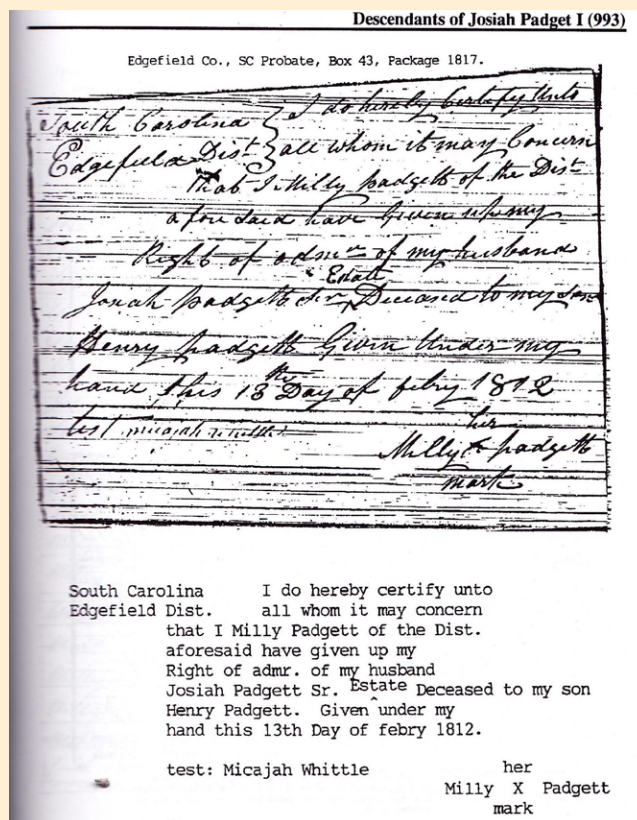 Descendants of Josiah Padget I (993)
Edgefield Co., SC Probate, Box 43, Package 1817.
South Carolina } I do hereby Certify Unto
Edgefield Dist } all whom it may Concern
that I Milly padgett of the Dist
afore Said have Given up my
Right of admr of my husband
Estate
Josiah padgett Snr ^ Deceasd to my son
Henry padgett Given Under my
hand this 13th Day of febry 1812
test micajah whittle
her
Milly X padgett
mark
South Carolina I do hereby certify unto
Edgefield Dist. all whom it may concern
that I Milly Padgett of the Dist.
aforesaid have given up my
Right of admr. of my husband
Josiah Padgett Sr. Estate ^ Deceased to my son
Henry Padgett. Given under my
hand this 13th Day of febry 1812.
test: Micajah Whittle her
Milly X Padgett
mark